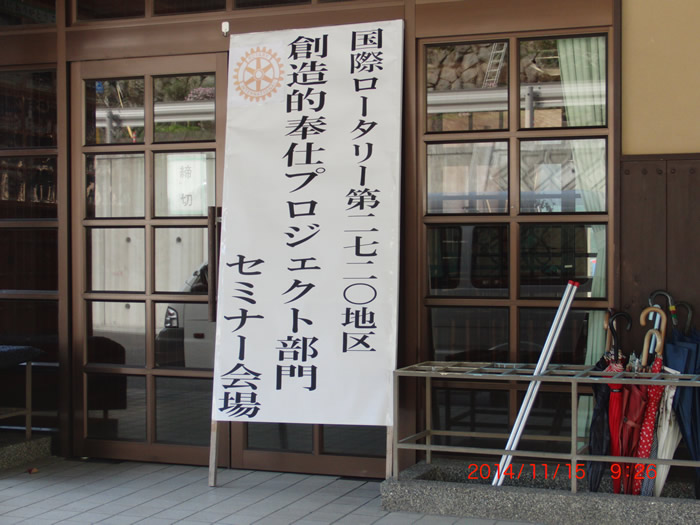 国際ロータリー第二七二〇地区
創造的奉仕プロジェクト部門
セミナー会場
締切
2014/11/15 9:26